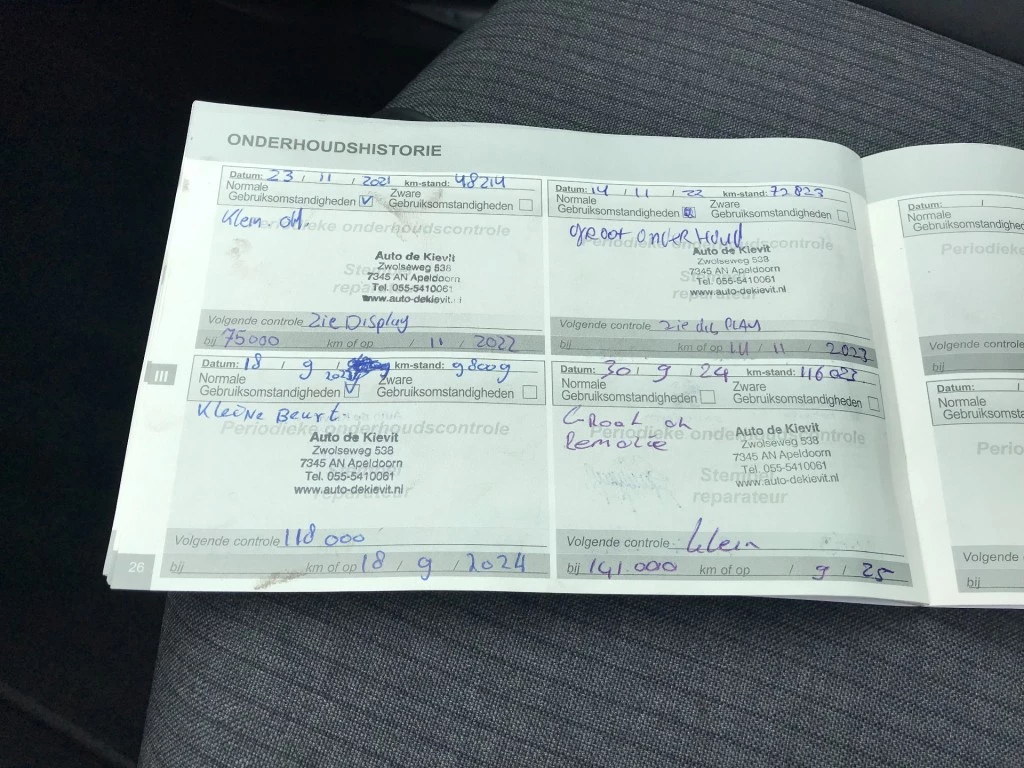 ONDERHOUDSHISTORIE
Datum: 23 / 11 / 2021 km-stand: 48214
Normale Gebruiksomstandigheden
Zware Gebruiksomstandigheden
Klein oH.
Periodieke onderhoudscontrole
Auto de Kievit
Zwolseweg 538
7345 AN Apeldoorn
Tel. 055-5410061
www.auto-dekievit.
Volgende controle Zie Display
bij 75000 km of op / 11 / 2022
Datum: 14 / 11 / 22 km-stand: 72823
Normale Gebruiksomstandigheden
Zware Gebruiksomstandigheden
groot onderHoud
Periodieke onderhoudscontrole
Auto de Kievit
Zwolseweg 538
7345 AN Apeldoorn
Tel. 055-5410061
www.auto-dekievit.nl
Volgende controle Zie disPLAY
bij km of op 14 / 11 / 2023
III
Datum: 18 / 9 / km-stand: 98009
Normale Gebruiksomstandigheden
Zware Gebruiksomstandigheden
Kleine Beurt.
Periodieke onderhoudscontrole
Auto de Kievit
Zwolseweg 538
7345 AN Apeldoorn
Tel. 055-5410061
www.auto-dekievit.nl
Volgende controle 118 000
bij km of op 18 / 9 / 2024
Datum: 30 / 9 / 24 km-stand: 116023
Normale Gebruiksomstandigheden
Zware Gebruiksomstandigheden
Groot oh
Periodieke onderhoudscontrole
Auto de Kievit
Zwolseweg 538
7345 AN Apeldoorn
Tel. 055-5410061
www.auto-dekievit.nl
Stempel
reparateur
Volgende controle klein
bij 141.000 km of op / 9 / 25
26
Datum: /
Normale
Gebruiksomsta
Periodie
Volgende controle
bij
Datum: /
Normale
Gebruiksomst
Perio
Volgende
bij